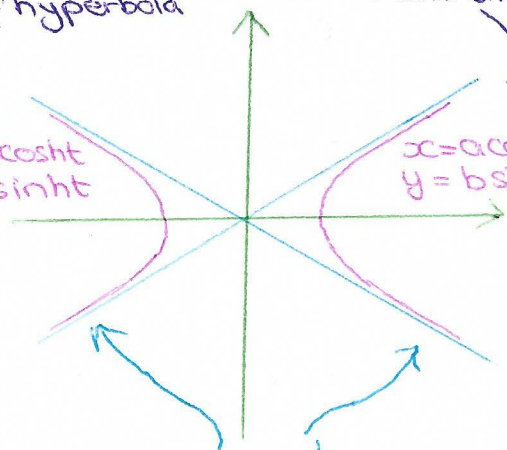 hyperbola
cosht
sinht
x=aco
y=bs